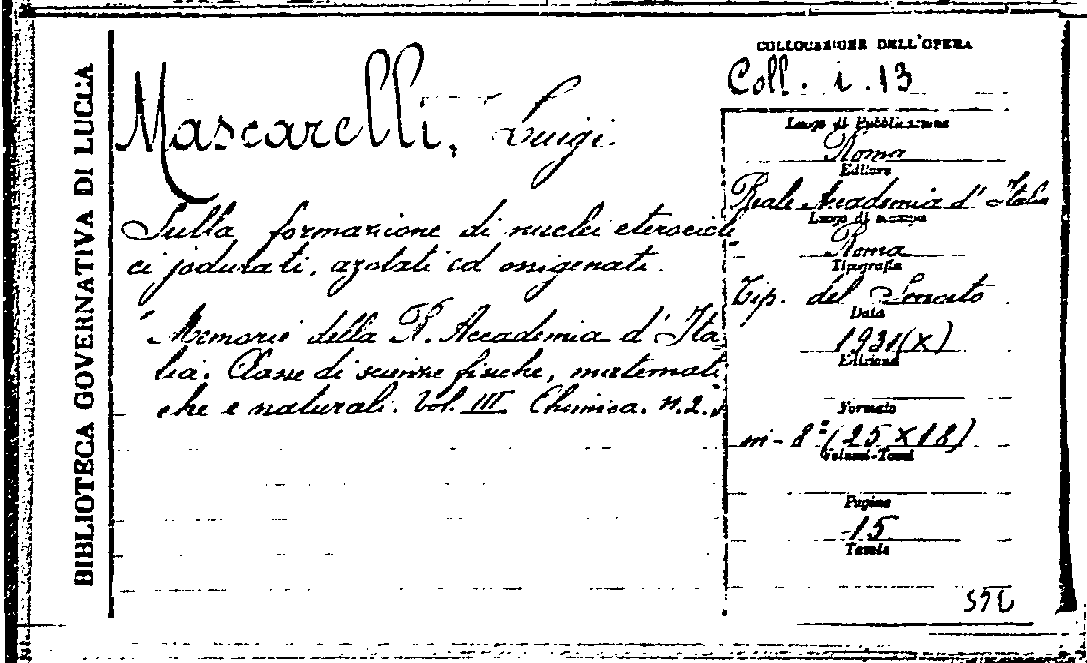 BIBLIOTECA GOVERNATIVA DI LUCCA
Mascarelli, Luigi.
Sulla formazione di nuclei eterocicli
ci jodurati, azotati ed ossigenati.
"Memorie della R. Accademia d'Ita-
lia. Classe di scienze fisiche, matemati
che e naturali. Vol. III. Chimica. N.2."
COLLOCAZIONE DELL'OPERA
Coll. i. 13
Luogo di Pubblicazione
Roma
Editore
Reale Accademia d'Italia
Luogo di stampa
Roma
Tipografia
Tip. del Senato
Data
1931(X)
Edizione
Formato
in-8°(25X18)
Volumi-Tomi
Pagine
15
Tavole